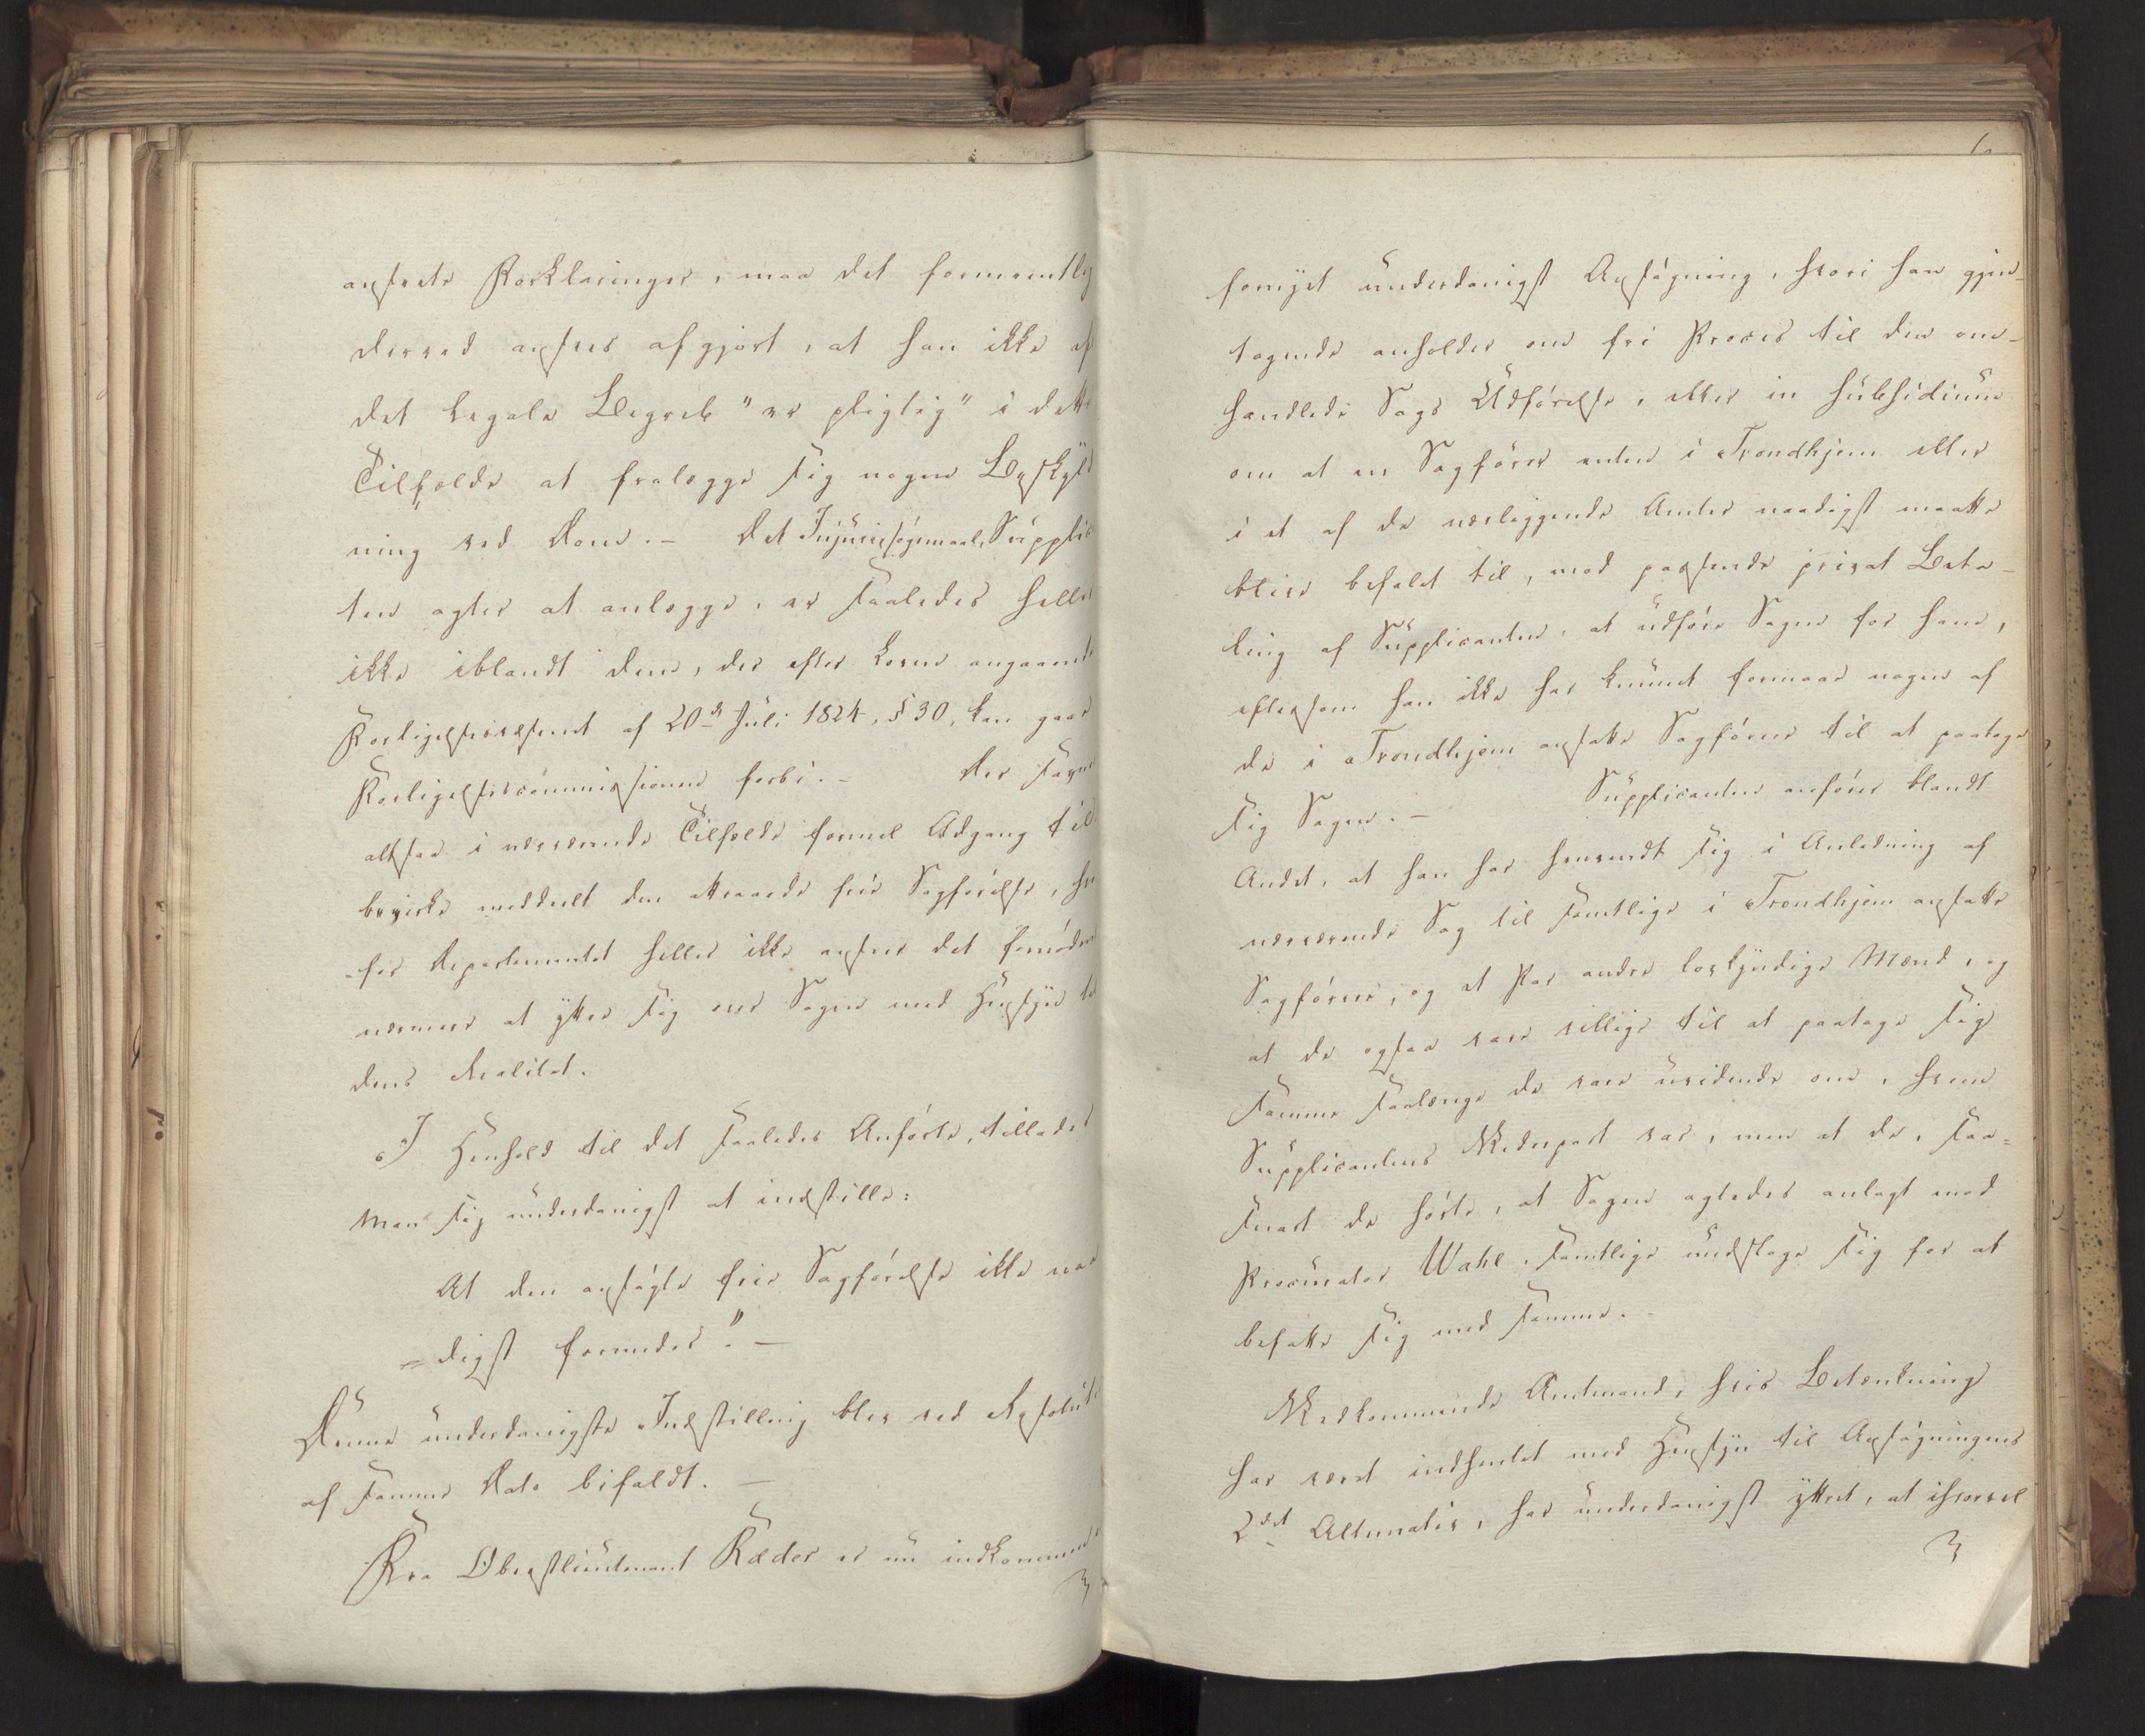 ansete Forklaringer, maa det formeentlig
derved ansees afgjort, at han ikke af
det legale Begreb "er pligtig" i dette
Tilfælde at fralægge sig nogen Beskyld
ning ved Dom.- Det Injuriesøgsmaal, Supplic
ten agter at anlægge, er saaledes heller
ikke iblandt dem, der efter Loven angaaende
Forligelsesvæsenet af 20de Juli 1824, § 30, kan gaae
Forligelsescommissionen forbi.- Der savnes
altsaa i nærværende Tilfælde formel Adgang til
bevirke meddeelt den attraaede frie Sagførelse, hvor
-for Departementet heller ikke anseer det fornødent
nærmere at yttre sig over Sagen med Hensyn til
dens Realitet.
I Henhold til det saaledes Anførte, tillader
man sig underdanigst at indstille:
At den ansøgte frie Sagførelse ikke naa
=digst forundes".-
Denne underdanigste Indstilling blev ved Resolution
af samme Dato bifaldt. -
Fra Oberstlieutenant Ræder er nu indkommen
fornyet underdanigst Ansøgning, hvori han gjen-
tagende anholder om fri Proces til den om-
handlede Sags Udførelse, eller in subsidium
om at en Sagfører enten i Trondhjem eller
i et af de nærliggende Amter naadigst maatte
blive befalet til, mod passende privat Beta-
ling af Supplicanten, at udføre Sagen for ham,
eftersom han ikke har kunnet formaae nogen af
de i Trondhjem ansatte Sagførere til at paatage
sig Sagen.- Supplicanten anfører blandt
Andet, at han har henvendt sig i Anledning af
nærværende Sag til samtlige i Trondhjem ansatte
Sagførere, og et Par andre lovkyndige Mænd, og
at de ogsaa vare villige til at paatage sig
samme saalænge de vare uvidende om, hvem
Supplicantens Modpart var, men at de, saa=
snart de hørte, at Sagen agtedes anlagt mod
Procurator Wahl, samtlige undsloge sig for at
befatte sig med samme.-
Vedkommende Amtmand, hvis Betænkning
har været indhentet med Hensyn til Ansøgningens
2det Alternativ, har underdanigst yttret, at ihvorvel